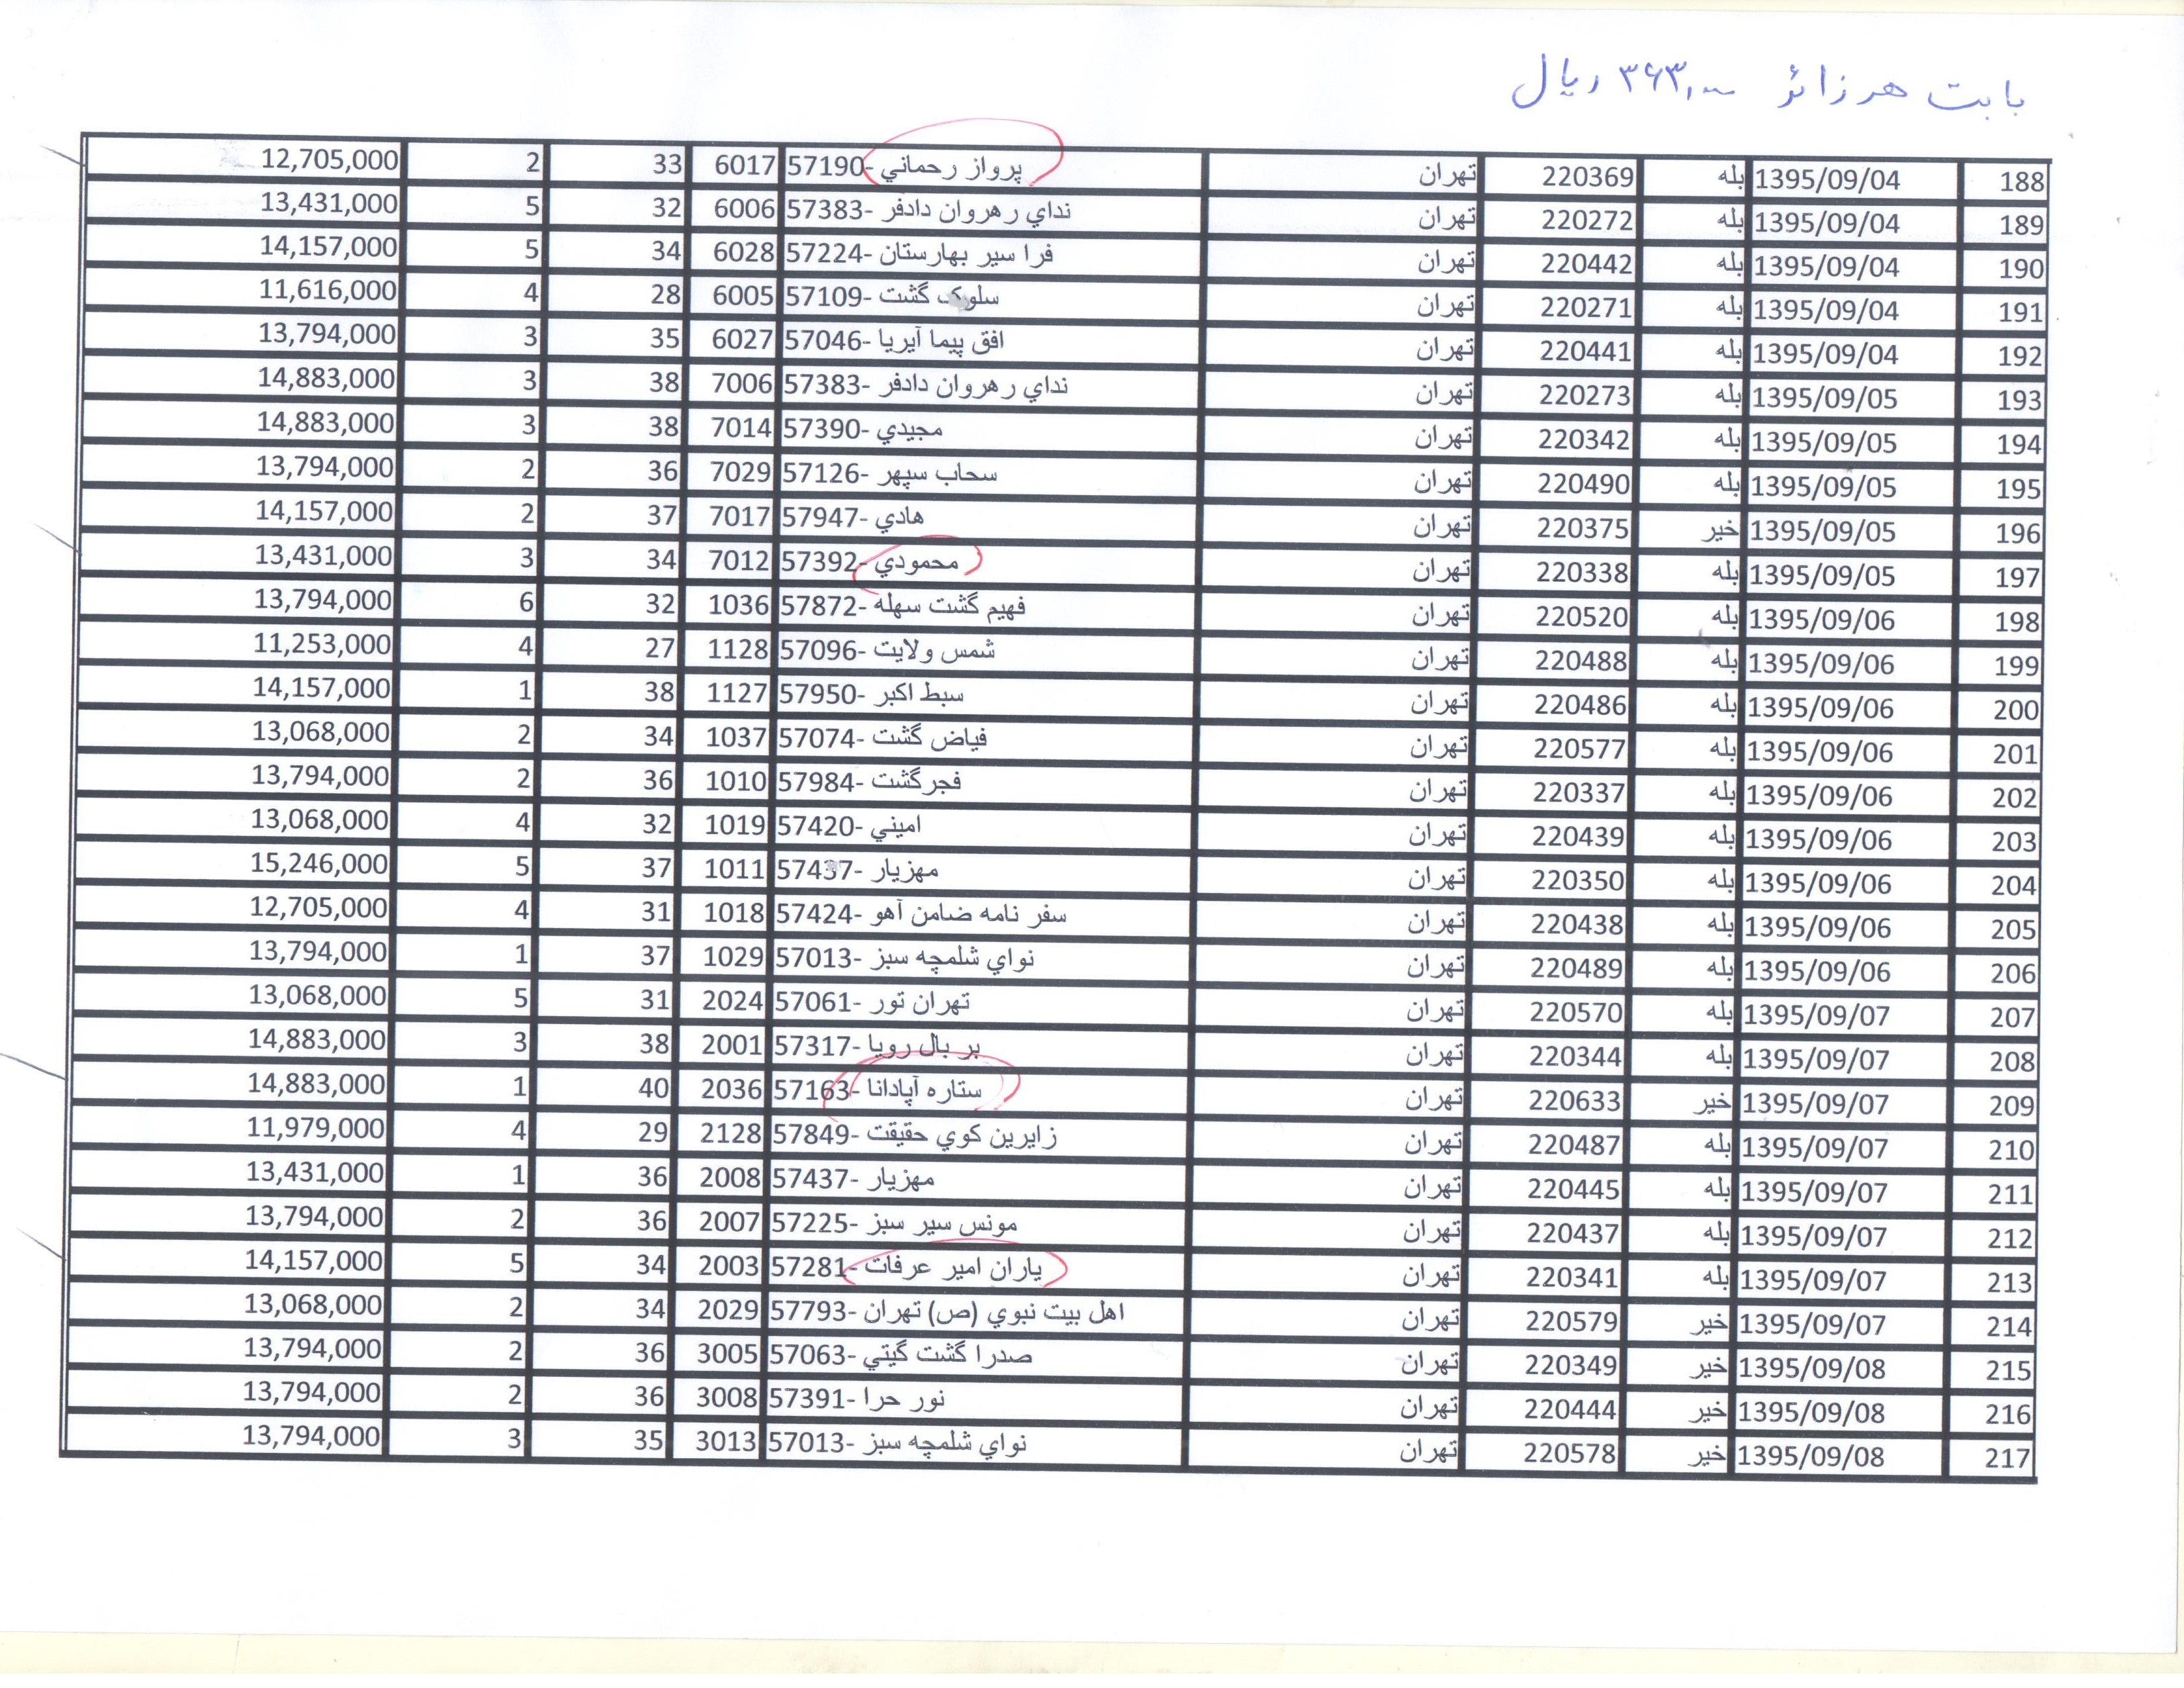 بابت هر زائر ۳۶۳,۰۰۰ ریال
188 1395/09/04 بله 220369 تهران پرواز رحماني -57190 6017 33 2 12,705,000
189 1395/09/04 بله 220272 تهران نداي رهروان دادفر -57383 6006 32 5 13,431,000
190 1395/09/04 بله 220442 تهران فرا سير بهارستان -57224 6028 34 5 14,157,000
191 1395/09/04 بله 220271 تهران سلوک گشت -57109 6005 28 4 11,616,000
192 1395/09/04 بله 220441 تهران افق پيما آيريا -57046 6027 35 3 13,794,000
193 1395/09/05 بله 220273 تهران نداي رهروان دادفر -57383 7006 38 3 14,883,000
194 1395/09/05 بله 220342 تهران مجيدي -57390 7014 38 3 14,883,000
195 1395/09/05 بله 220490 تهران سحاب سپهر -57126 7029 36 2 13,794,000
196 1395/09/05 خير 220375 تهران هادي -57947 7017 37 2 14,157,000
197 1395/09/05 بله 220338 تهران محمودي -57392 7012 34 3 13,431,000
198 1395/09/06 بله 220520 تهران فهيم گشت سهله -57872 1036 32 6 13,794,000
199 1395/09/06 بله 220488 تهران شمس ولايت -57096 1128 27 4 11,253,000
200 1395/09/06 بله 220486 تهران سبط اکبر -57950 1127 38 1 14,157,000
201 1395/09/06 بله 220577 تهران فياض گشت -57074 1037 34 2 13,068,000
202 1395/09/06 بله 220337 تهران فجرگشت -57984 1010 36 2 13,794,000
203 1395/09/06 بله 220439 تهران اميني -57420 1019 32 4 13,068,000
204 1395/09/06 بله 220350 تهران مهزيار -57437 1011 37 5 15,246,000
205 1395/09/06 بله 220438 تهران سفر نامه ضامن آهو -57424 1018 31 4 12,705,000
206 1395/09/06 بله 220489 تهران نواي شلمچه سبز -57013 1029 37 1 13,794,000
207 1395/09/07 بله 220570 تهران تهران تور -57061 2024 31 5 13,068,000
208 1395/09/07 بله 220344 تهران بر بال رويا -57317 2001 38 3 14,883,000
209 1395/09/07 خير 220633 تهران ستاره آپادانا -57163 2036 40 1 14,883,000
210 1395/09/07 بله 220487 تهران زايرين كوي حقيقت -57849 2128 29 4 11,979,000
211 1395/09/07 بله 220445 تهران مهزيار -57437 2008 36 1 13,431,000
212 1395/09/07 بله 220437 تهران مونس سير سبز -57225 2007 36 2 13,794,000
213 1395/09/07 بله 220341 تهران ياران امير عرفات -57281 2003 34 5 14,157,000
214 1395/09/07 خير 220579 تهران اهل بيت نبوي (ص) تهران -57793 2029 34 2 13,068,000
215 1395/09/08 خير 220349 تهران صدرا گشت گيتي -57063 3005 36 2 13,794,000
216 1395/09/08 خير 220444 تهران نور حرا -57391 3008 36 2 13,794,000
217 1395/09/08 خير 220578 تهران نواي شلمچه سبز -57013 3013 35 3 13,794,000